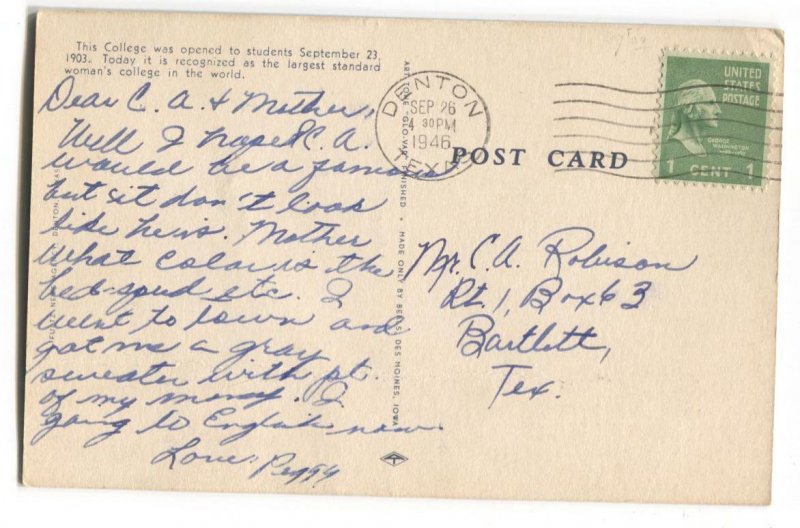 This College was opened to students September 23,
1903. Today it is recognized as the largest standard
woman's college in the world.
Dear C. A. & Mother,
Well I hoped C. A.
would be a famous
but it don't look
like he is. Mother
what color is the
bed-spred etc. I
went to town and
got me a gray
sweater with pt.
of my money. I
going to English now.
Love, Peggy
DENTON
SEP 26
4 30 PM
1946
TEX.
POST CARD
UNITED
STATES
POSTAGE
GEORGE
WASHINGTON
1 CENT 1
Mr. C. A. Robison
Rt. 1, Box 63
Bartlett,
Tex.
MADE ONLY BY DES MOINES, IOWA